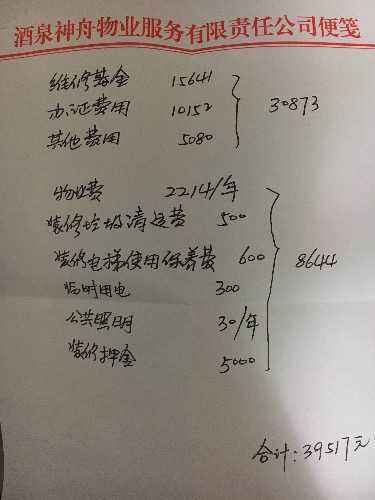 酒泉神舟物业服务有限责任公司便笺
维修基金 15641
办证费用 10152
其他费用 5080
30873
物业费 2214/年
装修垃圾清运费 500
装修电梯使用保养费 600
临时用电 300
公共照明 30/年
装修押金 5000
8644
合计:39517元